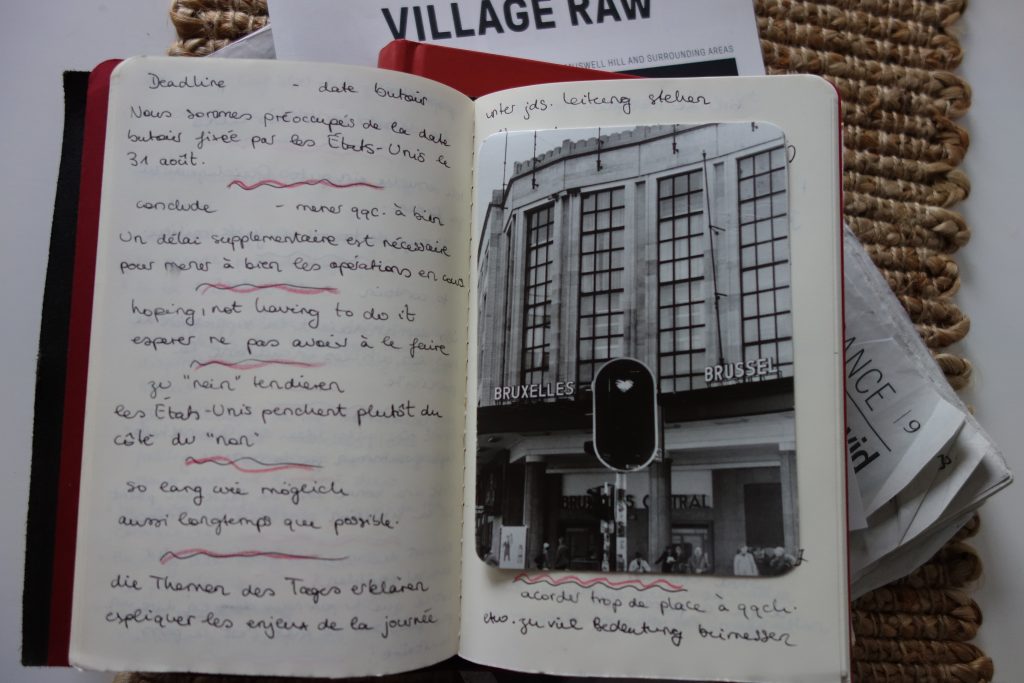 VILLAGE RAW
MUSWELL HILL AND SURROUNDING AREAS
Deadline - date butoir
Nous sommes préoccupés de la date
butoir fixée par les États-Unis le
31 août.
conclude - mener qqc. à bien
Un délai supplementaire est nécessaire
pour mener à bien les opérations en cours.
hoping, not having to do it
esperer ne pas avoir à le faire
zu "nein" tendieren
les États-Unis penchent plutôt du
côté du "non"
so lang wie möglich
aussi longtemps que possible.
die Themen des Tages erklären
expliquer les enjeux de la journée
unter jds. Leitung stehen
BRUXELLES
BRUSSEL
BRUXELLES CENTRAL
acorder trop de place à qqch.
etws. zu viel Bedeutung beimessen